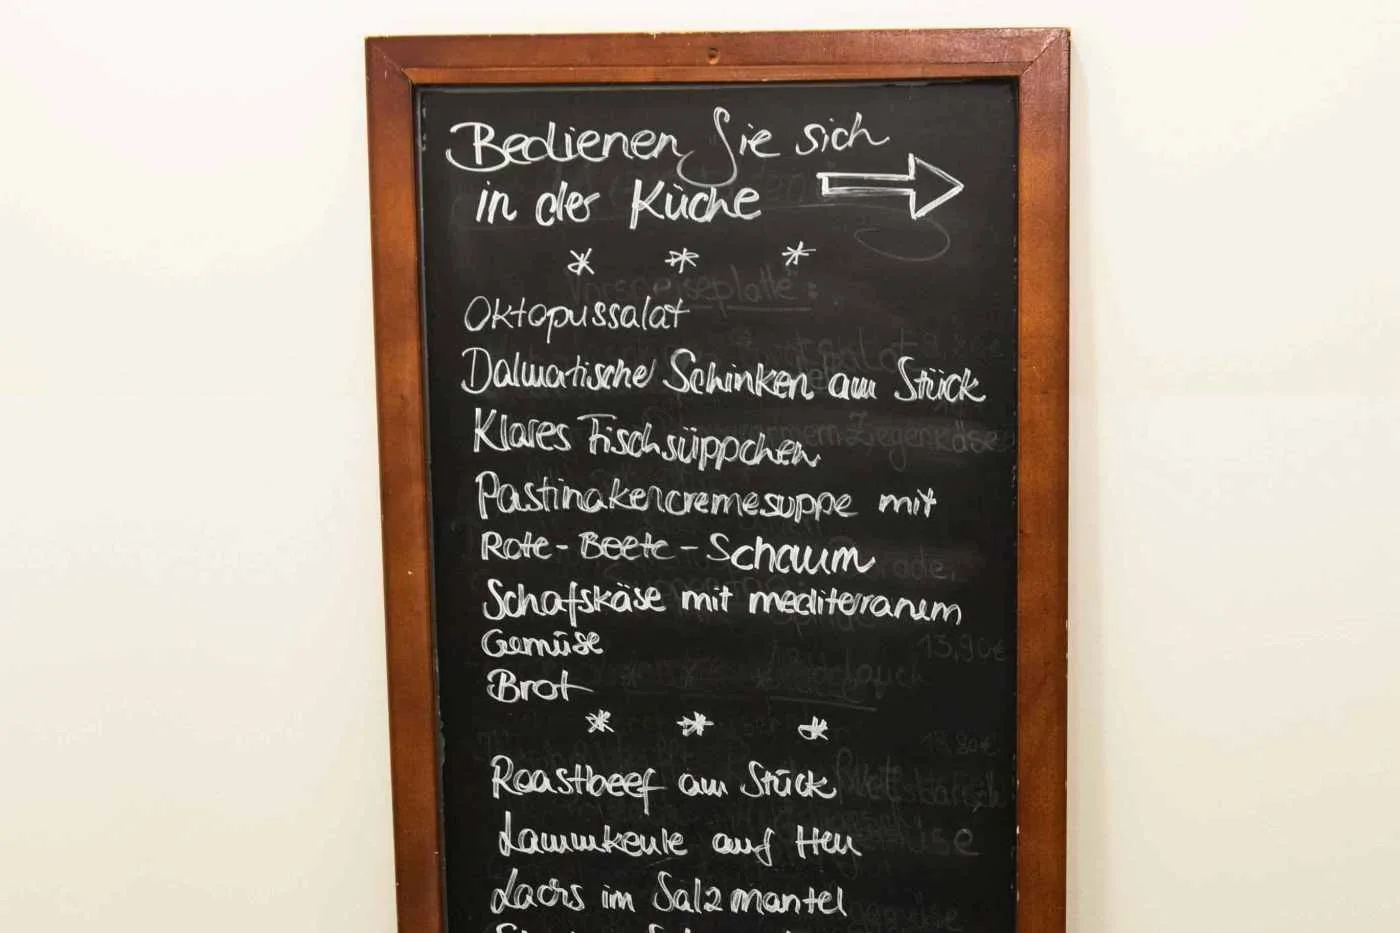 Bedienen Sie sich
in der Küche
* * *
Oktopussalat
Dalmatische Schinken am Stück
Klares Fischsüppchen
Pastinakencremesuppe mit
Rote-Beete-Schaum
Schafskäse mit mediterranem
Gemüse
Brot
* * *
Roastbeef am Stück
Lammkeule auf Heu
Lachs im Salzmantel